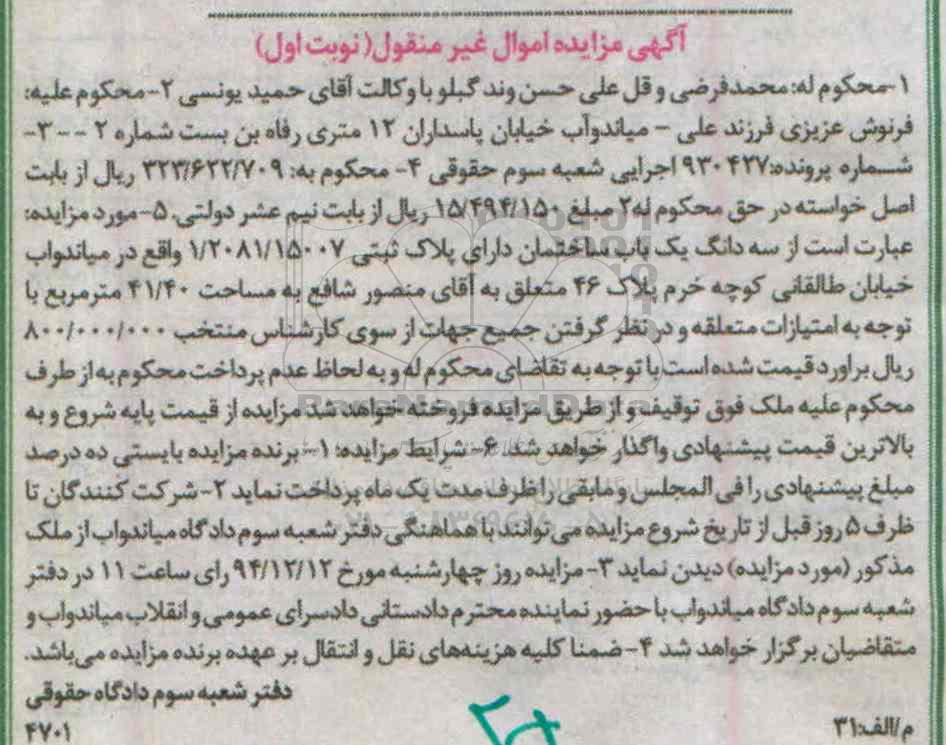 آگهی مزایده اموال غیر منقول(نوبت اول)
۱-محکوم له: محمدفرضی و قل علی حسن وند گبلو با وکالت آقای حمید یونسی ۲-محکوم علیه:
فرنوش عزیزی فرزند علی – میاندوآب خیابان پاسداران ۱۲ متری رفاه بن بست شماره ۲ --۳-
شماره پرونده:۹۳۰۴۲۷ اجرایی شعبه سوم حقوقی ۴- محکوم به: ۳۲۳/۶۲۲/۷۰۹ ریال از بابت
اصل خواسته در حق محکوم له۲ مبلغ ۱۵/۴۹۴/۱۵۰ ریال از بابت نیم عشر دولتی. ۵-مورد مزایده:
عبارت است از سه دانگ یک باب ساختمان دارای پلاک ثبتی ۱/۲۰۸۱/۱۵۰۰۷ واقع در میاندواب
خیابان طالقانی کوچه خرم پلاک ۴۶ متعلق به آقای منصور شافع به مساحت ۴۱/۴۰ مترمربع با
توجه به امتیازات متعلقه و در نظر گرفتن جمیع جهات از سوی کارشناس منتخب ۸۰۰/۰۰۰/۰۰۰
ریال براورد قیمت شده است با توجه به تقاضای محکوم له و به لحاظ عدم پرداخت محکوم به از طرف
محکوم علیه ملک فوق توقیف و از طریق مزایده فروخته خواهد شد مزایده از قیمت پایه شروع و به
بالاترین قیمت پیشنهادی واگذار خواهد شد. ۶- شرایط مزایده: ۱- برنده مزایده بایستی ده درصد
مبلغ پیشنهادی را فی المجلس و مابقی را ظرف مدت یک ماه پرداخت نماید ۲-شرکت کنندگان تا
ظرف ۵ روز قبل از تاریخ شروع مزایده می توانند با هماهنگی دفتر شعبه سوم دادگاه میاندواب از ملک
مذکور (مورد مزایده) دیدن نماید ۳- مزایده روز چهارشنبه مورخ ۹۴/۱۲/۱۲ رای ساعت ۱۱ در دفتر
شعبه سوم دادگاه میاندواب با حضور نماینده محترم دادستانی دادسرای عمومی و انقلاب میاندواب و
متقاضیان برگزار خواهد شد ۴- ضمنا کلیه هزینه‌های نقل و انتقال بر عهده برنده مزایده می‌باشد.
دفتر شعبه سوم دادگاه حقوقی
م/الف:۳۱ ۴۷۰۱